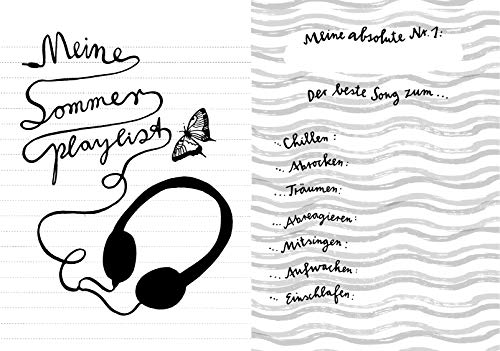 Meine
Sommer
playlist
Meine absolute Nr. 1:
Der beste Song zum...
...Chillen:
...Abrocken:
...Träumen:
...Abreagieren:
...Mitsingen:
...Aufwachen:
...Einschlafen: